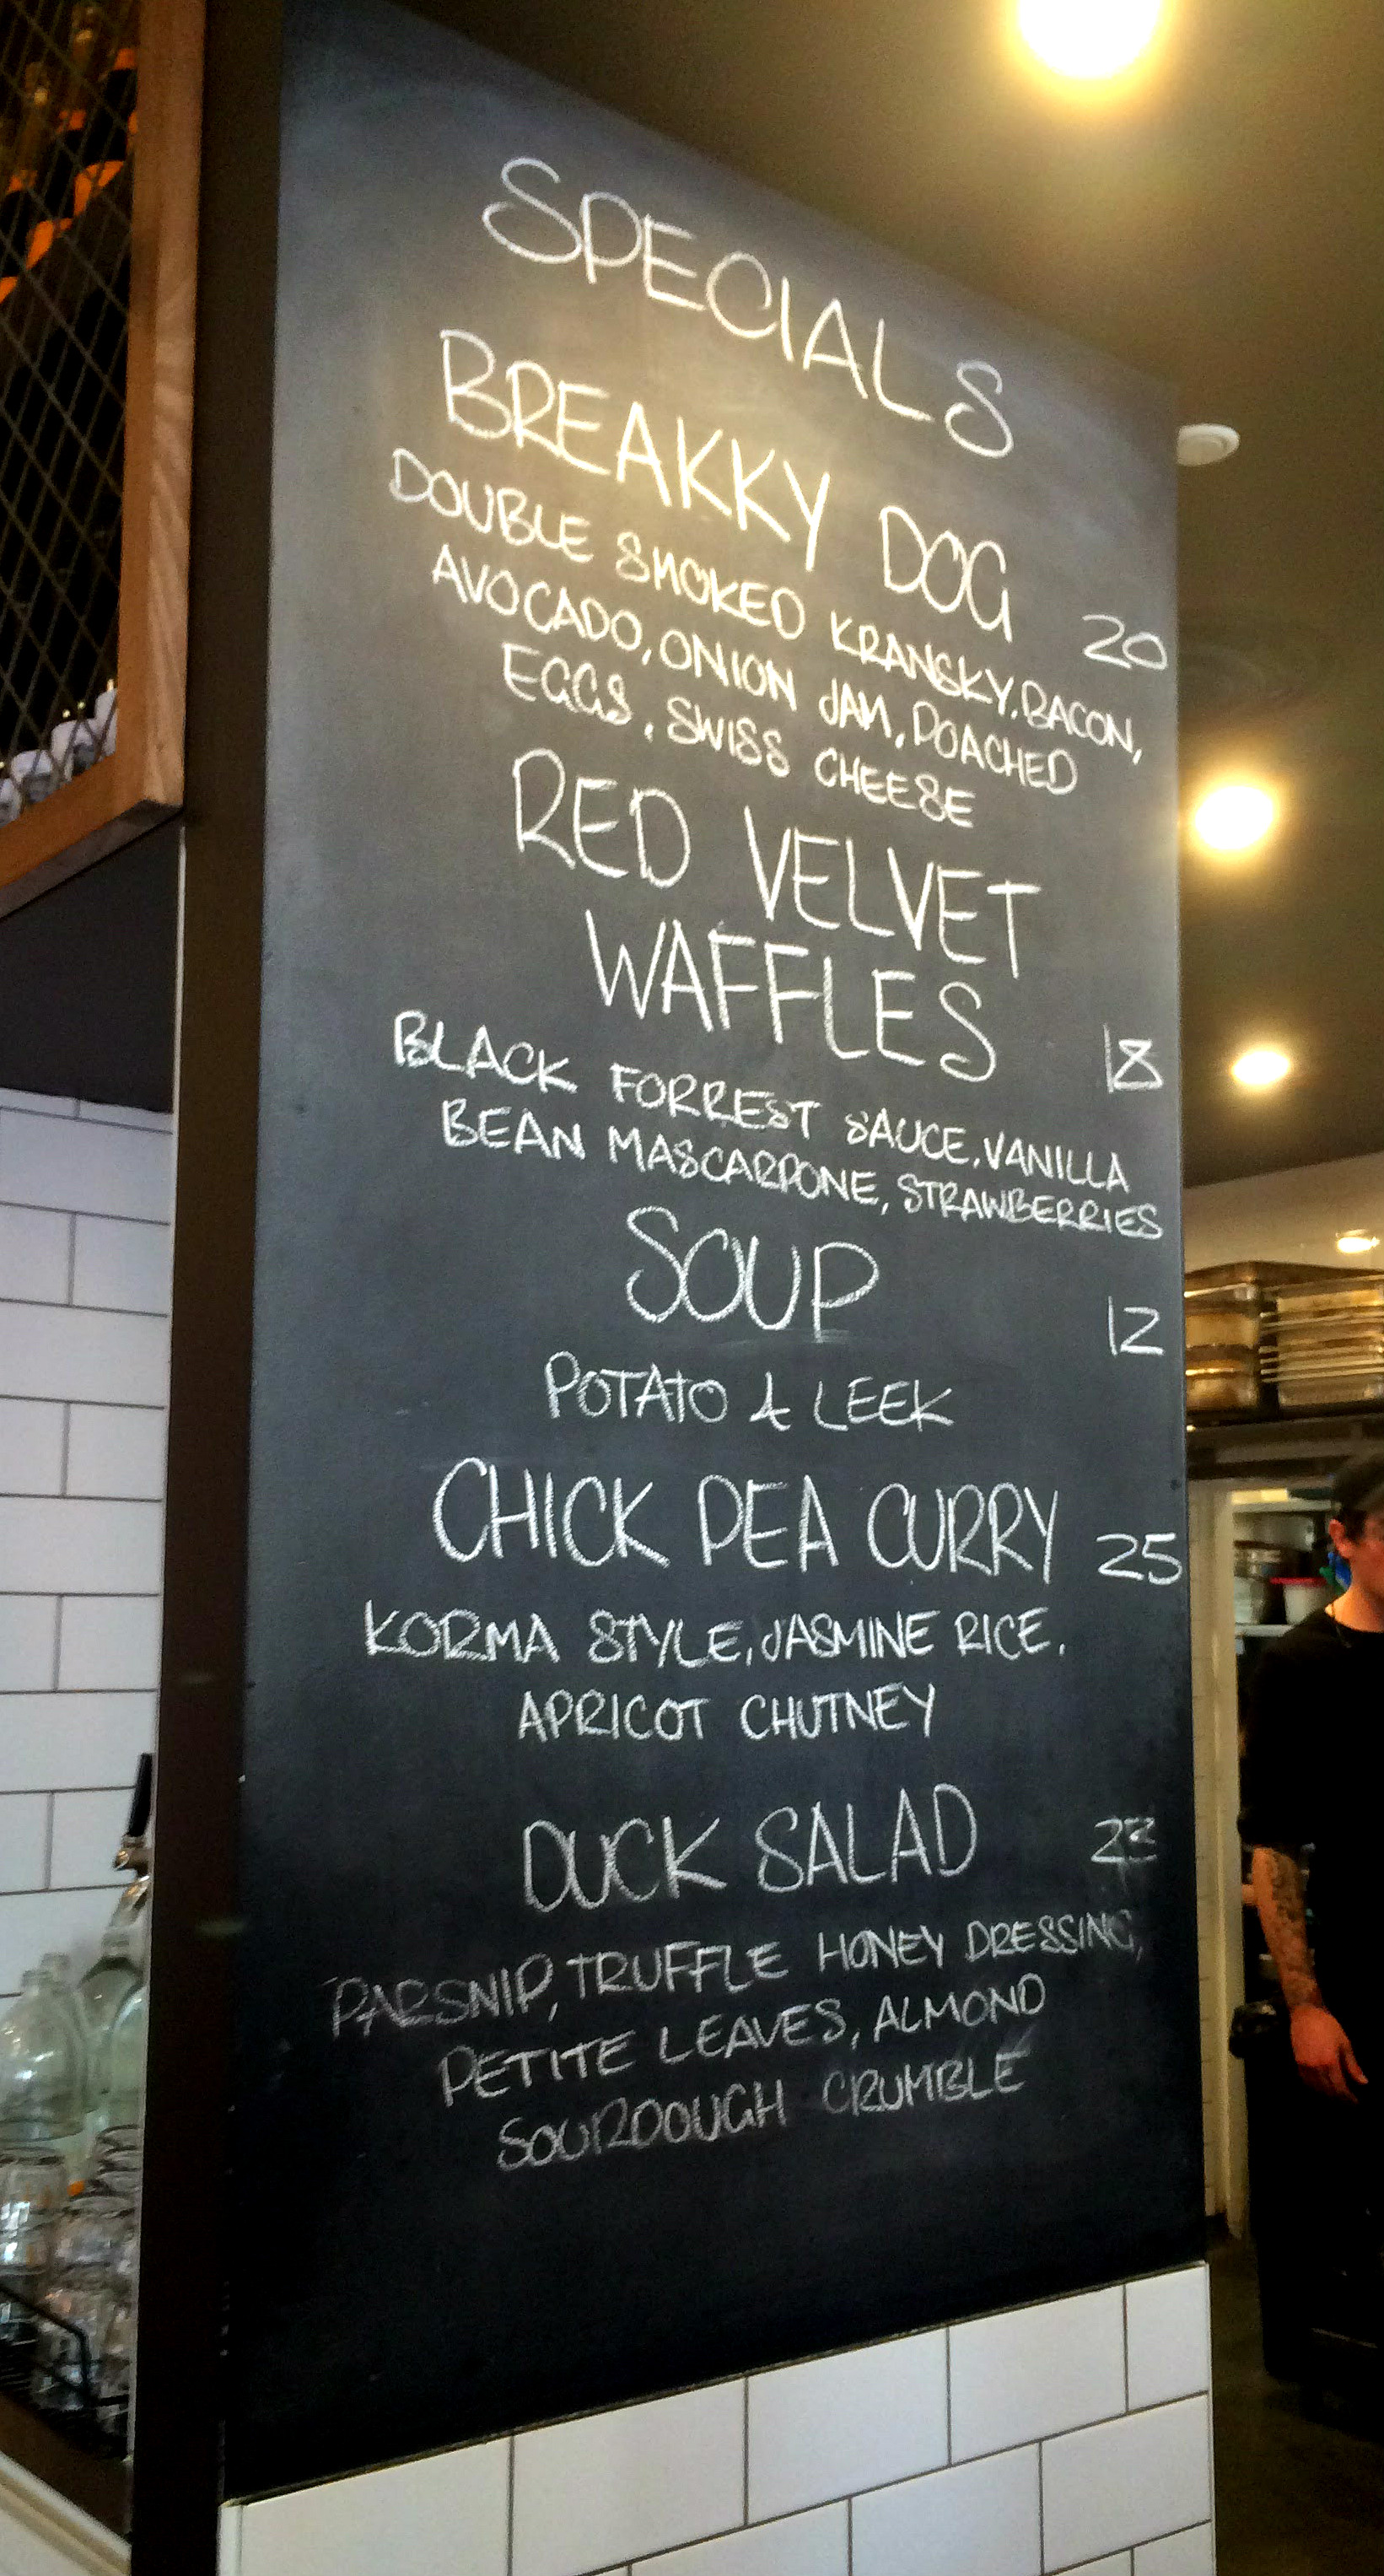 SPECIALS
BREAKKY DOG 20
DOUBLE SMOKED KRANSKY, BACON,
AVOCADO, ONION JAM, POACHED
EGGS, SWISS CHEESE
RED VELVET
WAFFLES 18
BLACK FORREST SAUCE, VANILLA
BEAN MASCARPONE, STRAWBERRIES
SOUP 12
POTATO & LEEK
CHICK PEA CURRY 25
KORMA STYLE, JASMINE RICE,
APRICOT CHUTNEY
DUCK SALAD 23
PARSNIP, TRUFFLE HONEY DRESSING,
PETITE LEAVES, ALMOND
SOURDOUGH CRUMBLE